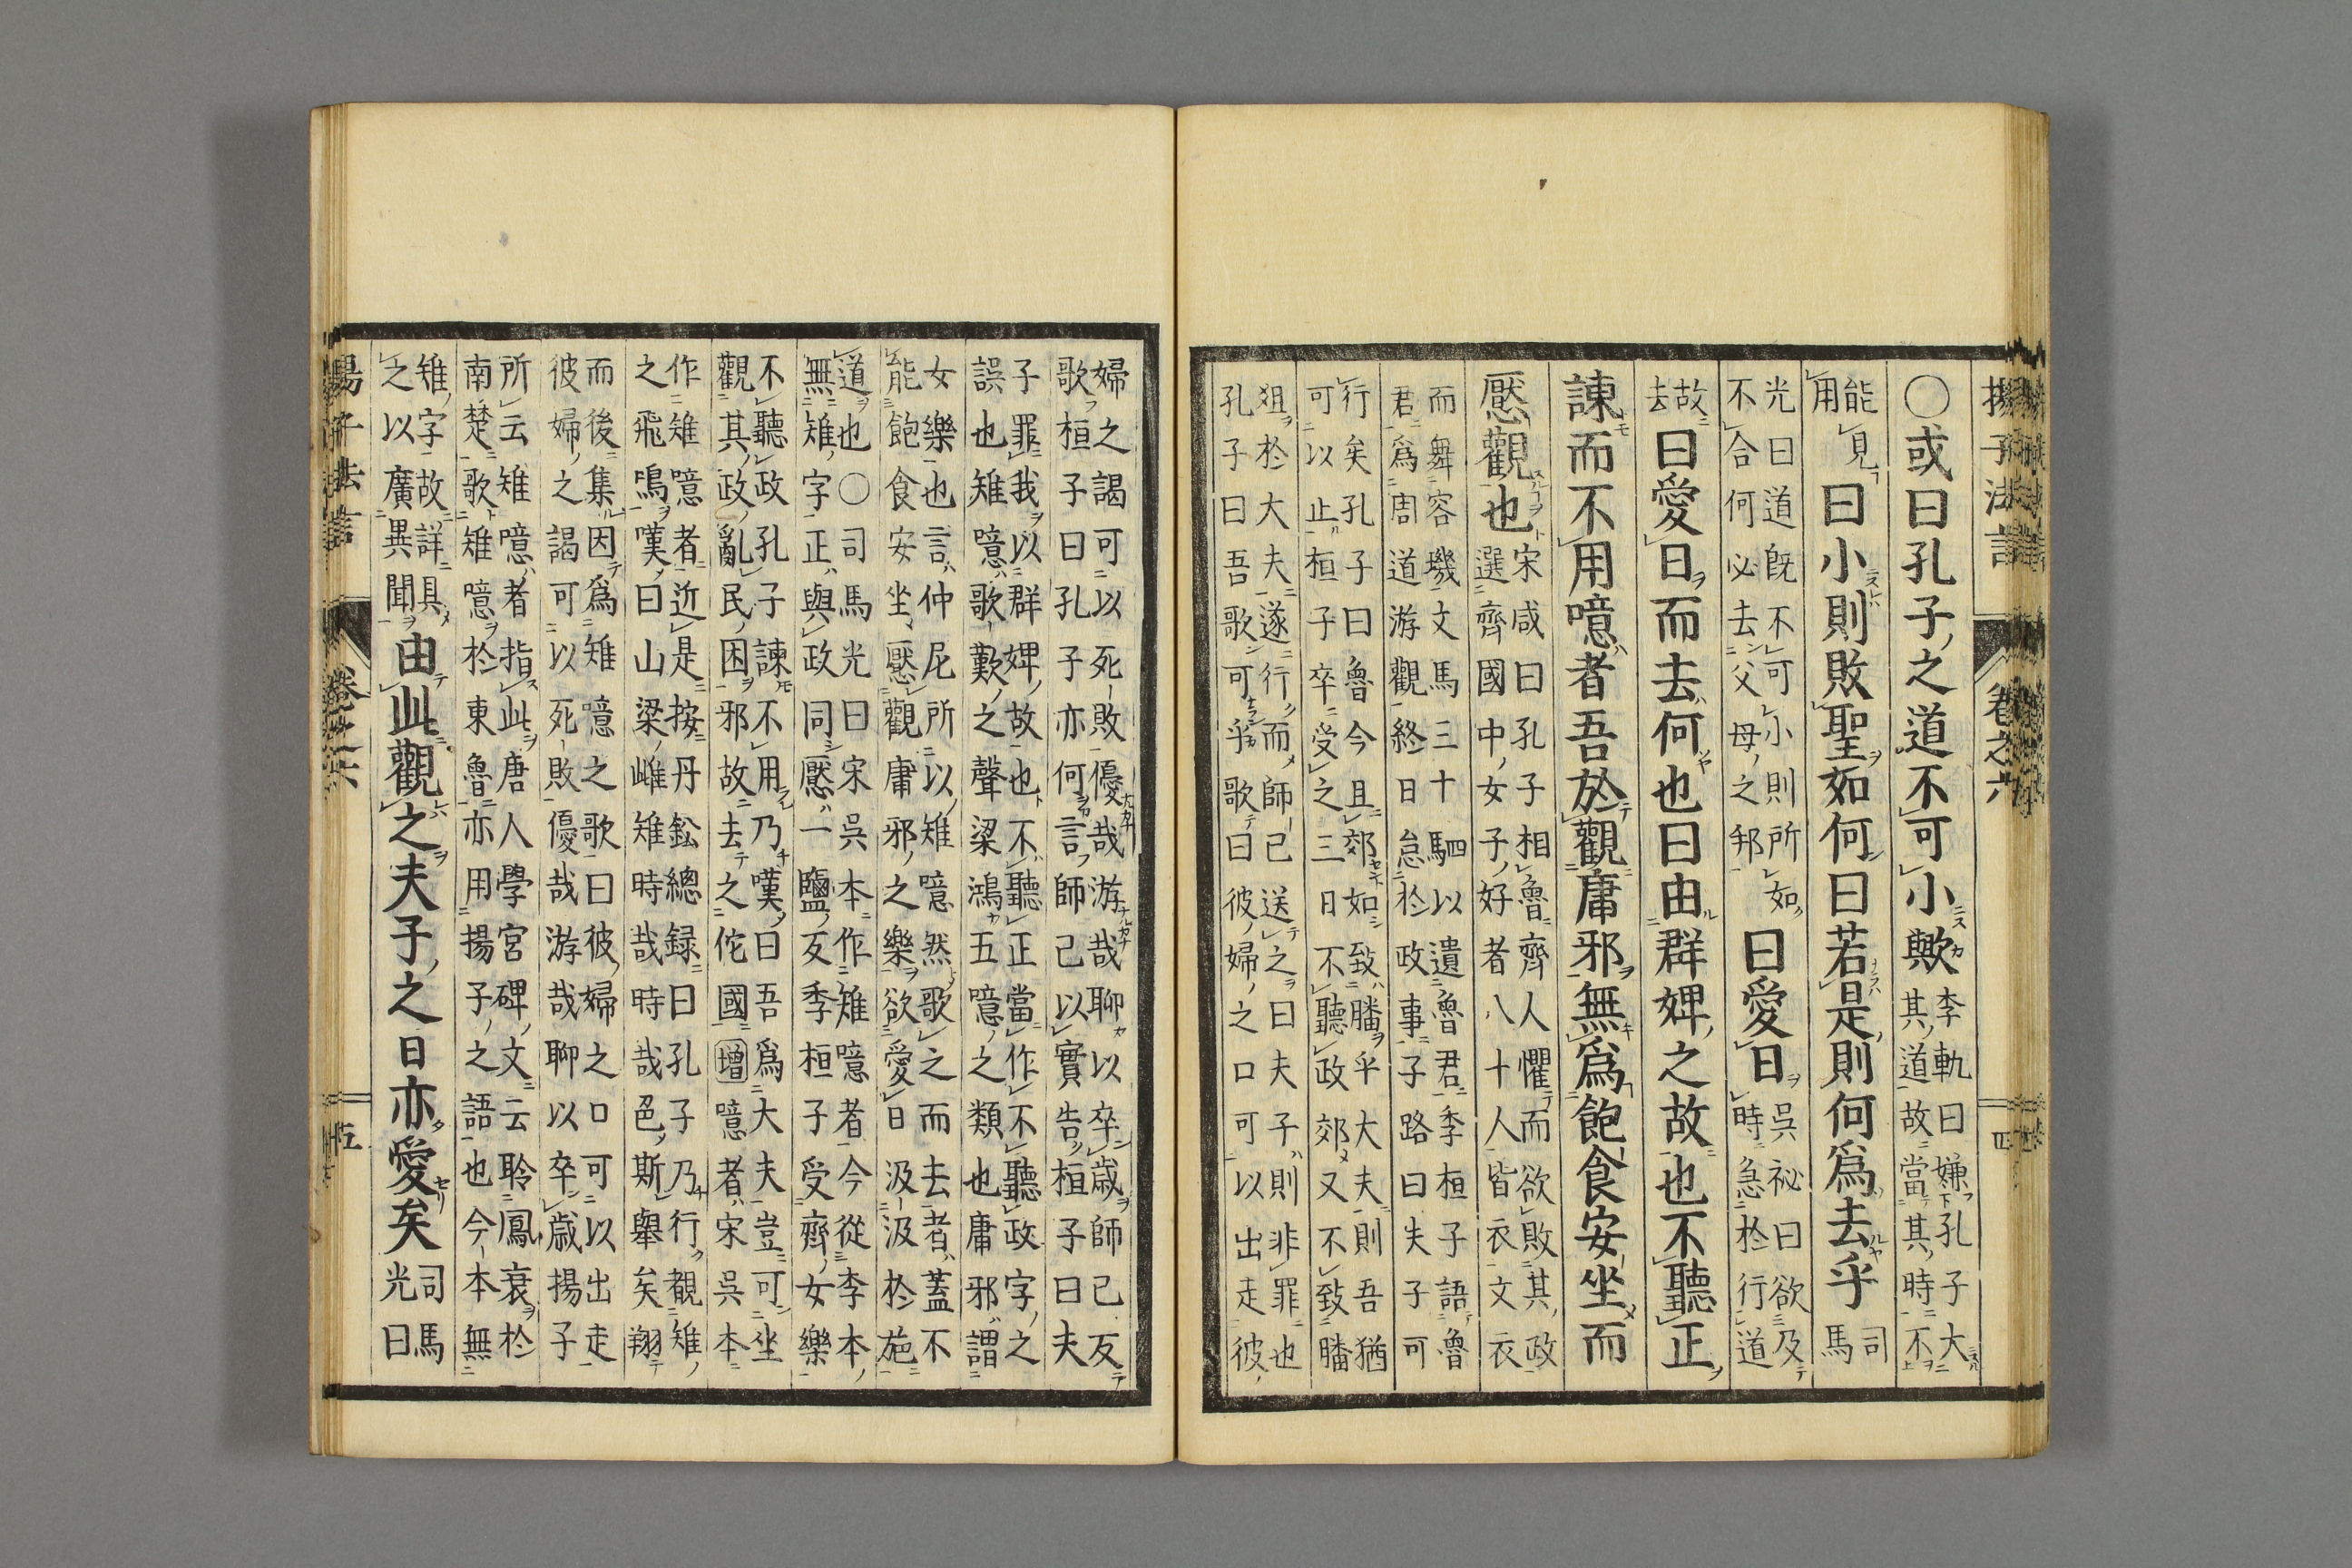 揚子法言 卷之六 四
○或曰孔子之道不可小歟
李軌曰嫌孔子大
其道故當其時不
能見
用
曰小則敗聖如何曰若是則何爲去乎
司
馬
光曰道旣不可小則所如
不合何必去父母之邦
曰愛日
吳祕曰欲及
時急於行道
故
去
曰愛日而去何也曰由群婢之故也不聽正
諫而不用噫者吾於觀庸邪無爲飽食安坐而
懕觀也
宋咸曰孔子相魯齊人懼而欲敗其政
選齊國中女子好者八十人皆衣文衣
而舞容璣文馬三十駟以遺魯君季桓子語魯
君爲周道游觀終日怠於政事子路曰夫子可
行矣孔子曰魯今且郊如致膰乎大夫則吾猶
可以止桓子卒受之三日不聽政郊又不致膰
俎於大夫遂行而師已送之曰夫子則非罪也
孔子曰吾歌可乎歌曰彼婦之口可以出走彼
婦之謁可以死敗優哉游哉聊以卒歲師已反
歌桓子曰孔子亦何言師己以實告桓子曰夫
子罪我以群婢故也不聽正當作不聽政字之
誤也雉噫歌歎之聲梁鴻五噫之類也庸邪謂
女樂也言仲尼所以雉噫然歌之而去者蓋不
能飽食安坐懕觀庸邪之樂欲愛日汲汲於施
道也○司馬光曰宋吳本作雉噫者今從李本
無雉字正與政同懕一鹽反季桓子受齊女樂
不聽政孔子諫不用乃嘆曰吾爲大夫豈可坐
觀其政亂民困邪故去之佗國増噫者宋吳本
作雉噫者近是按丹鉛總録曰孔子乃行覩雉
之飛鳴嘆曰山梁雌雉時哉時哉色斯舉矣翔
而後集因爲雉噫之歌曰彼婦之口可以出走
彼婦之謁可以死敗優哉游哉聊以卒歲揚子
所云雉噫者指此唐人學宮碑文云聆鳳衰於
南楚歌雉噫於東魯亦用揚子之語也今本無
雉字故詳具
之以廣異聞
由此觀之夫子之日亦愛矣
司馬
光曰
揚子法言 卷之六 五